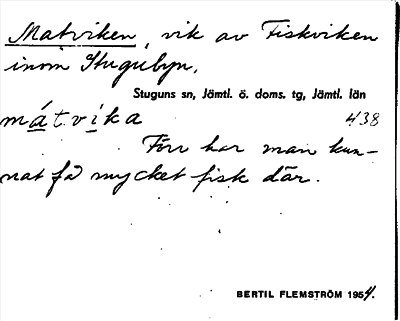 Matviken, vik av Fiskviken
inom Stugubyn.
Stuguns sn, Jämtl. ö. doms. tg, Jämtl. län
mát.vika 438
Förr har man kun-
nat få mycket fisk där.
BERTIL FLEMSTRÖM 1954.